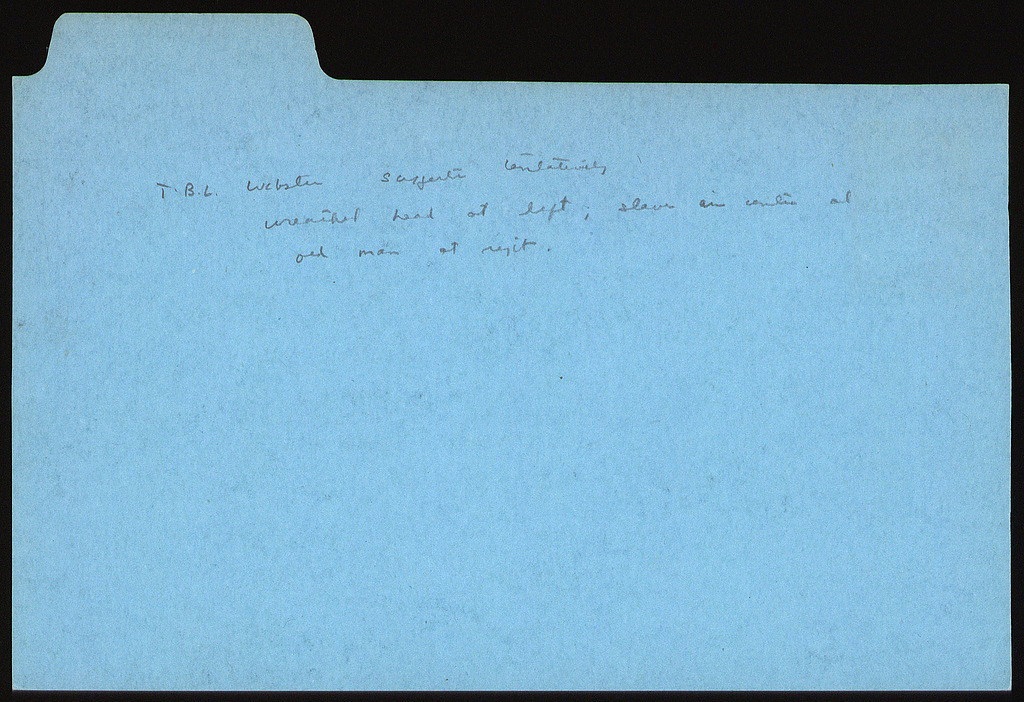 T.B.L. Webster suggests tentatively
wreathed head at left; slave in centre and
old man at right.